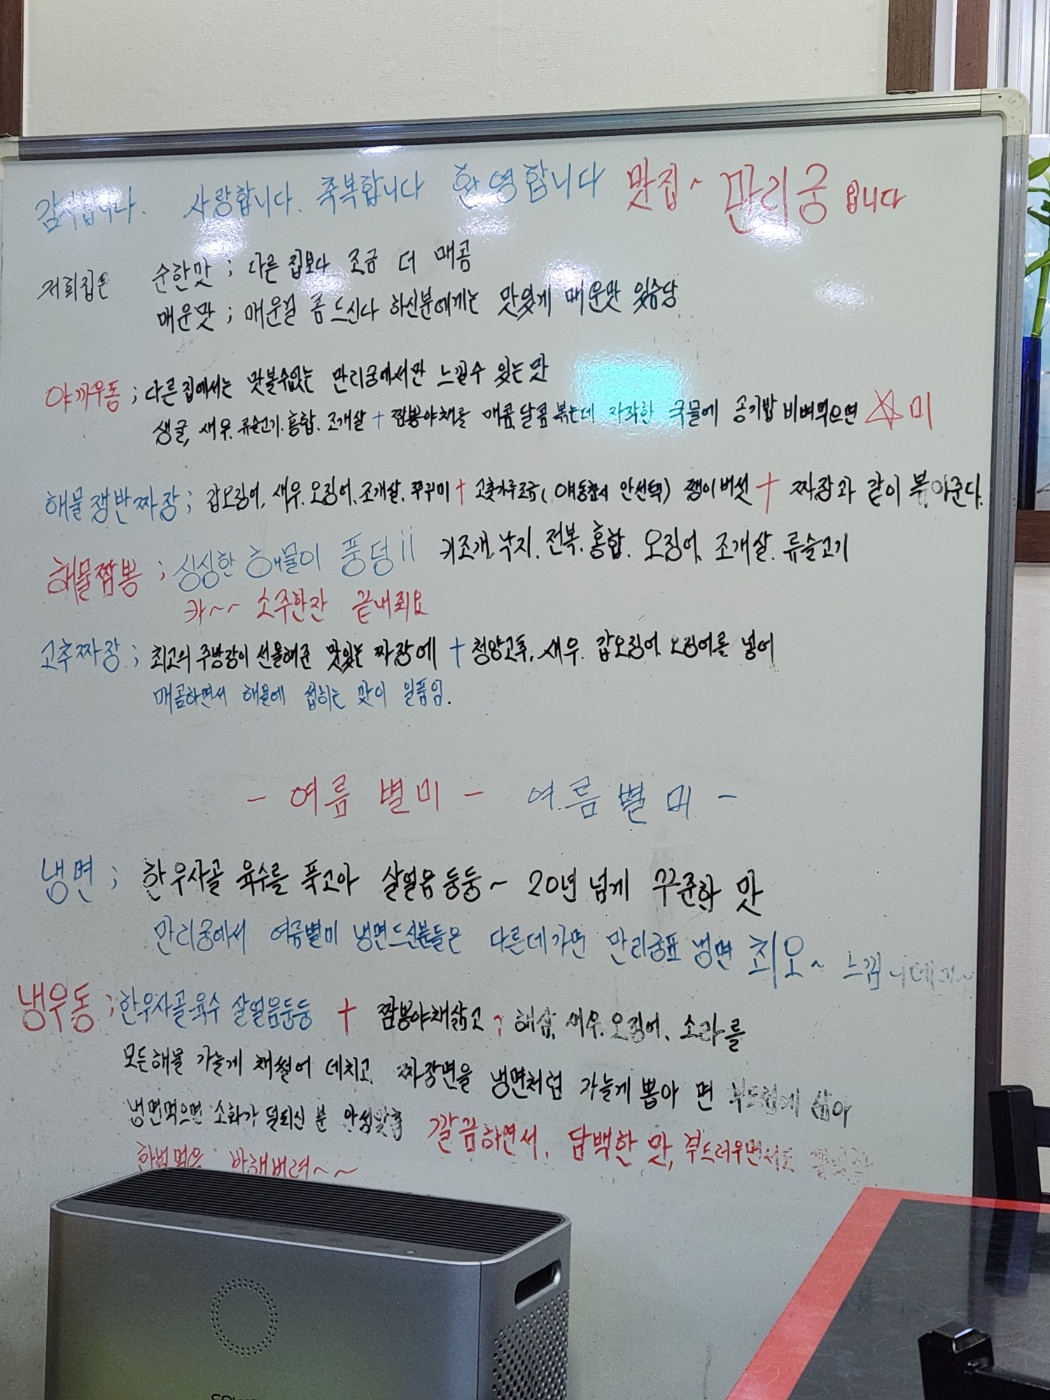 감사합니다. 사랑합니다. 축복합니다 환영합니다 맛집~ 만리궁입니다
저희집은 순한맛 ; 다른 집보다 조금 더 매콤
매운맛 ; 매운걸 좀 드신다 하신분에게는 맛있게 매운맛 있슴당
야끼우동 ; 다른집에서는 맛볼수없는 만리궁에서만 느낄수 있는 맛
생굴, 새우. 류슬고기. 홍합. 조개살 + 짬뽕야채를 매콤달콤 볶는데 자작한 국물에 공기밥 비벼먹으면 ☆미
해물쟁반짜장 ; 갑오징어, 새우. 오징어. 조개살. 쭈꾸미 + 고춧가루조금( 안선택) 팽이버섯 + 짜장과 같이 볶아준다.
해물짬뽕 ; 싱싱한 해물이 풍덩!! 키조개. 낙지. 전복. 홍합. 오징어. 조개살. 류슬고기
캬~~ 소주한잔 끝내죄요
고추짜장 ; 최고의 주방장이 선물해준 맛있는 짜장에 + 청양고추, 새우. 갑오징어. 오징어를 넣어
매콤하면서 해물에 씹히는 맛이 일품임.
- 여름 별미 - 여름 별미 -
냉면 ; 한우사골 육수를 푹고아 살얼음 둥둥~ 20년 넘게 꾸준한 맛
만리궁에서 여름별미 냉면드신분들은 다른데가면 만리궁표 냉면 최오~
냉우동 ; 한우사골육수 살얼음둥둥 + 짬뽕야채삶고 ; 해삼, 새우. 오징어. 소라를
모든해물 가늘게 채썰어 데치고. 짜장면을 냉면처럼 가늘게 뽑아 면 부드럽게 삶아
냉면먹으면 소화가 덜되신 분 안성맞춤 깔끔하면서, 담백한 맛, 부드러우면서도
한번먹은 반해버려~~